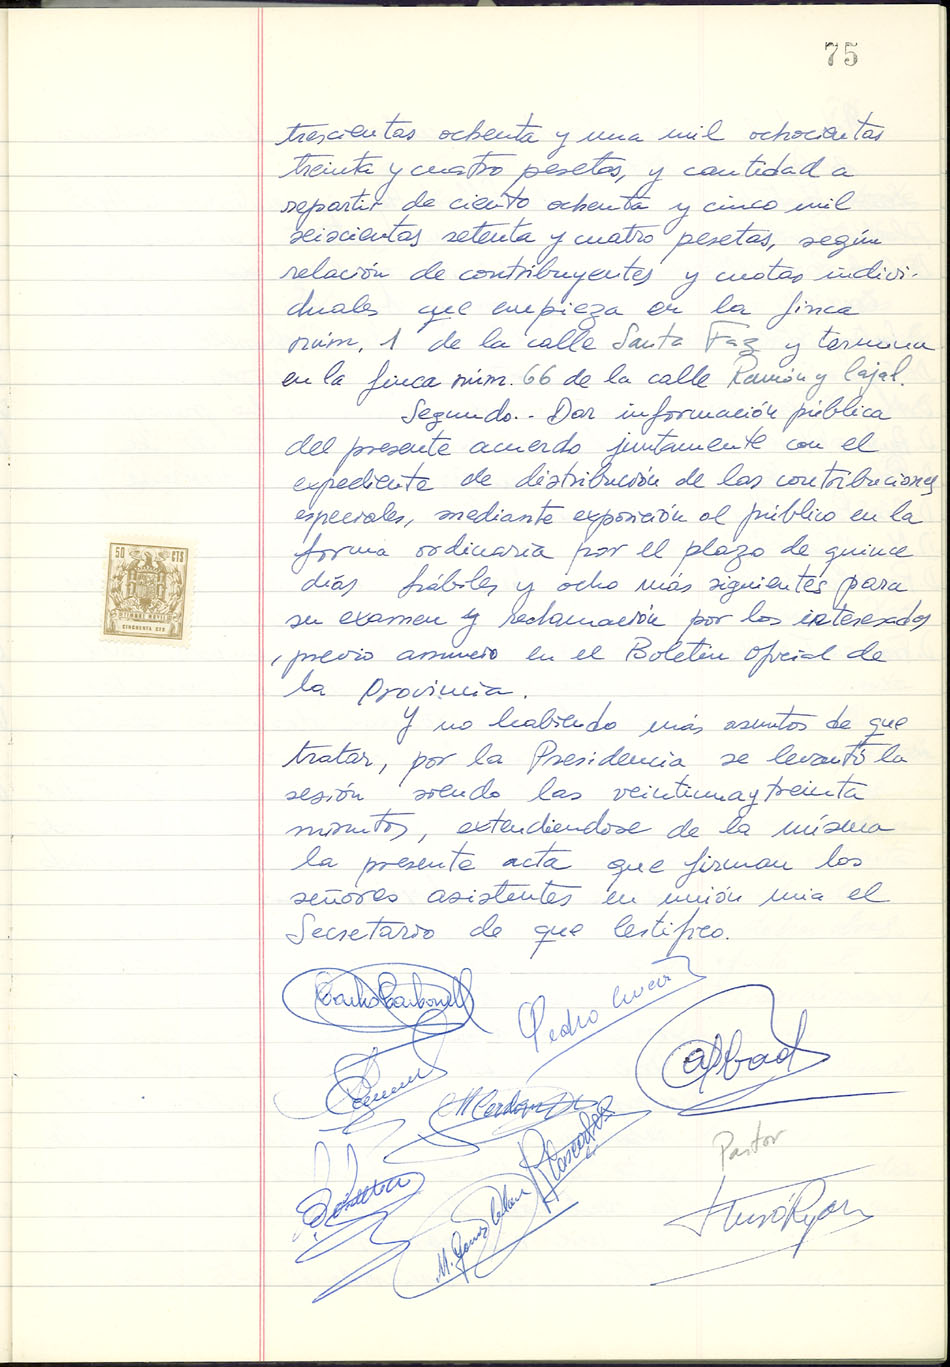 75
trescientas ochenta y una mil ochocientas
treinta y cuatro pesetas, y cantidad a
repartir de ciento ochenta y cinco mil
seiscientas setenta y cuatro pesetas, según
relación de contribuyentes y cuotas indivi-
duales que empieza en la finca
núm. 1 de la calle Santa Faz y termina
en la finca núm. 66 de la calle Ramón y Cajal.
Segundo.- Dar información pública
del presente acuerdo juntamente con el
expediente de distribución de las contribuciones
especiales, mediante exposición al público en la
forma ordinaria por el plazo de quince
días hábiles y ocho más siguientes para
su examen y reclamación por los interesados
, previo anuncio en el Boletín Oficial de
la Provincia.
Y no habiendo más asuntos de que
tratar, por la Presidencia se levantó la
sesión siendo las veintiuna y treinta
minutos, extendiendose de la misma
la presente acta que firman los
señores asistentes en unión mia el
Secretario de que certifico.
50 CTS
TIMBRE MOVIL
CINCUENTA CTS
Pedro
Abad
Pastor